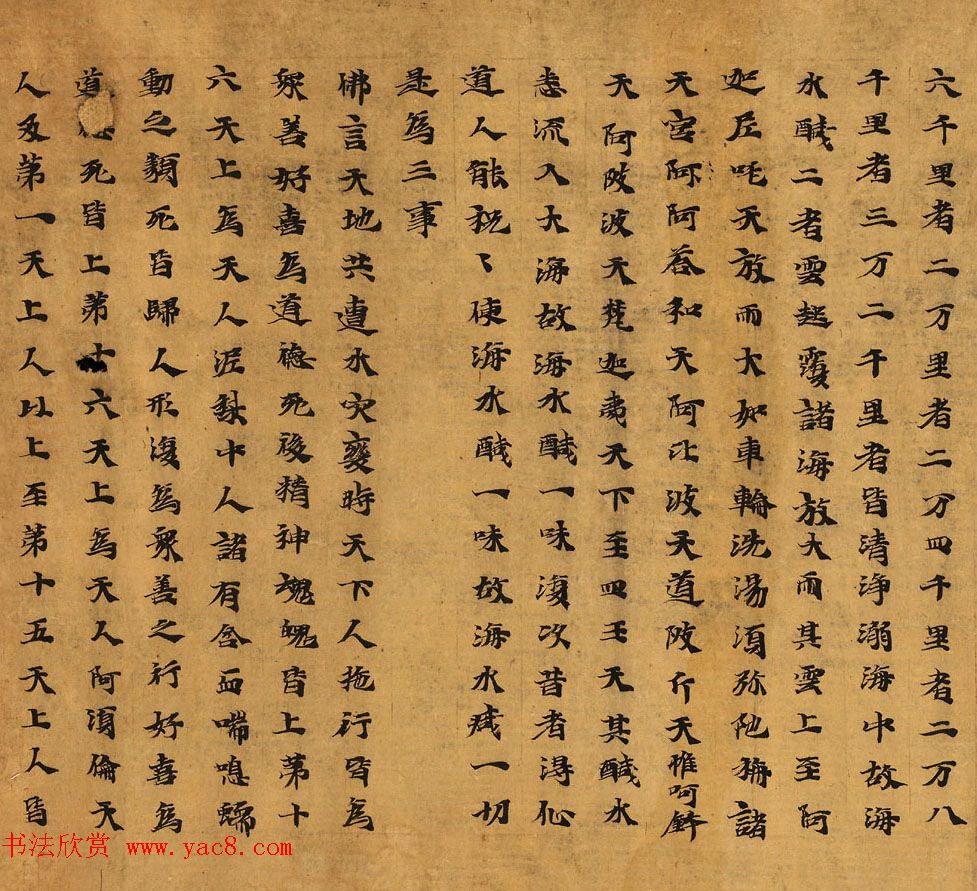 六千里者二万里者二万四千里者二万八
千里者三万二千里者皆清浄溺海中故海
水醎二者雲起覆諸海放大雨其雲上至阿
迦尼吒天放雨大如車輪洗湯須弥陁諸
天宫阿荅和天阿比波天道陂斤天惟呵鉢
天阿陂波天梵迦夷天下至四王天其醎水
悉流入大海故海水醎一味復次昔者得仙
道人能祝〻使海水醎一味故海水醎一切
是為三事
佛言天地共遭水灾變時天下人施行皆為
衆善好喜為道德死後精神魂魄皆上第十
六天上為天人泥黎中人諸有含血喘息蠕
動之類死皆歸人形復為衆善之行好喜為
道死皆上第十六天上為天人阿須倫天
人及第一天上人以上至第十五天上人皆
书法欣赏 www.yac8.com